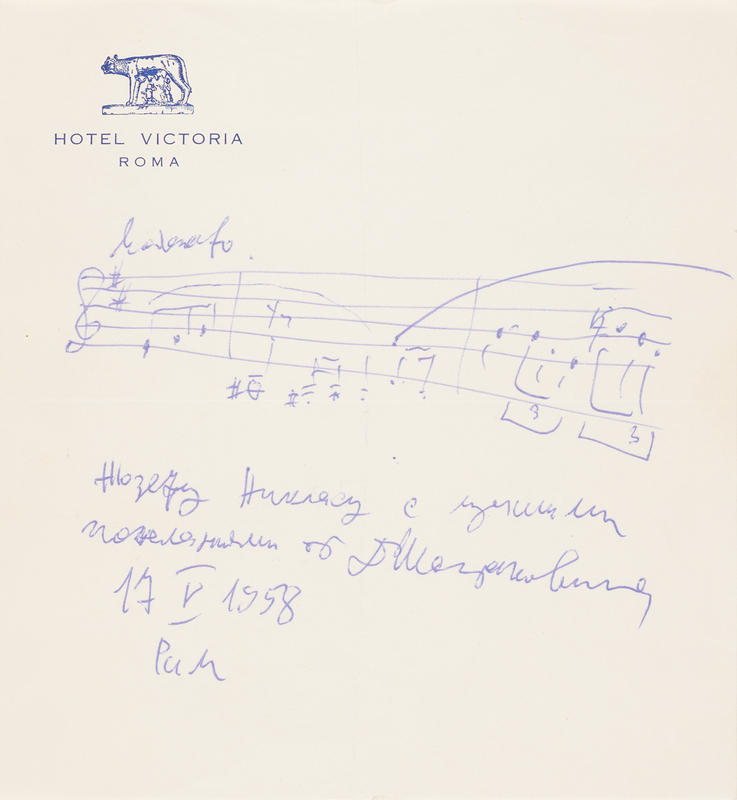 HOTEL VICTORIA
ROMA
Moderato.
3 3
Жозефу Никласу с лучшими
пожеланиями от Д Шостаковича
17 V 1958
Рим